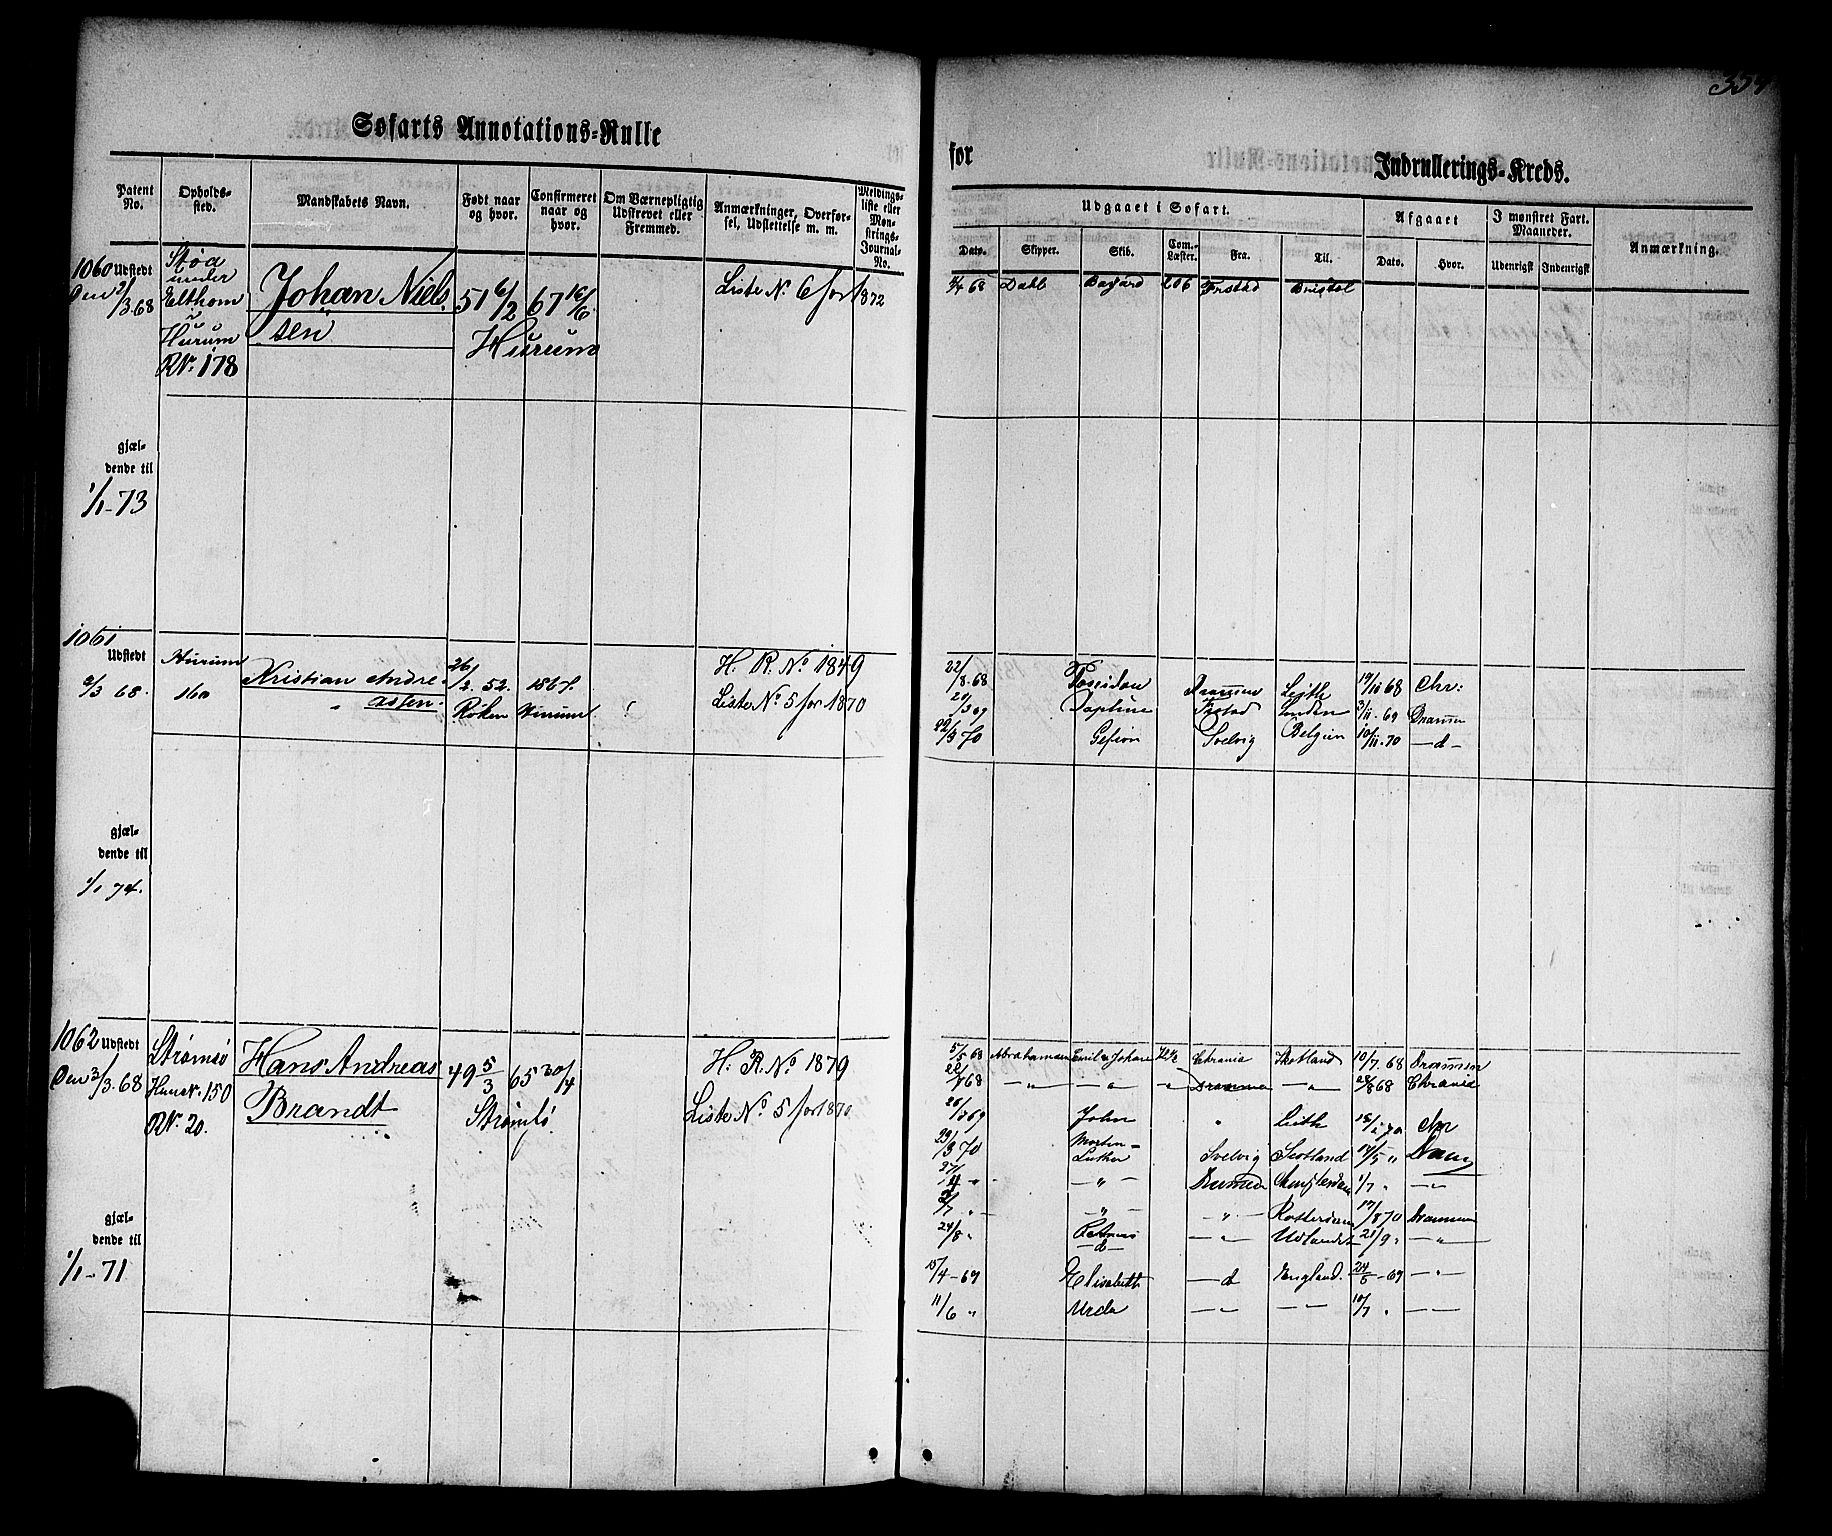 Søfarts Annotations-Rulle
Patent No.
Opholds-sted.
Mandskabets Navn.
Født naar og hvor.
Confirmeret naar og hvor.
Om Værnepligtig Udskrevet eller Fremmed.
Anmærkninger, Overførsel, Udslettelse m. m.
Meldings-liste eller Mønstrings-Journal-No.
1060 Udstedt
Den 2/3.68
Støa
under
Elthom
i
Hurum
RNo. 178
Johan Niels
sen
51 6/2
67 16/6
Hurum
Liste No. 6 for 1872
gjæl-
dende til
1/1-73
1061
Udstedt
2/3 68.
Hurum
160
Kristian Andre-
assen.
26/2. 52.
Røken
1867.
Hurum
H. R. No 1849
Liste No. 5 for 1870
gjæl-
dende til
1/1 74.
1062 Udstedt
Den 3/3.68
Strømsø
Hus No. 150
RNo. 20.
Hans Andreas
Brandt
49 5/3
65 30/4
Strømsø.
H. R. No 1879
Liste No. 5 for 1870
gjæl-
dende til
1/1-71
354
for
Indrullerings-Kreds.
Udgaaet i Søfart.
Afgaaet
I mønstret Fart. Maaneder.
Anmærkning.
Dato.
Skipper.
Skib.
Com.-Læster.
Fra.
Til.
Dato.
Hvor.
Udenrigst
Indenrigst
68 Dahl 206 Frstad Bristol
22/8.68 Poseidon Drammen Leith 19/10 68 Chr:
69 Daphne Frstad London 3/11.69 Drammen
22/3 70 Gefion Svelvig Belgien 10/11.70 — d —
5/5 68 Abrahamsen Emil & Johan Chrania Skotland 10/7.68 Drammen
68 — „ — — „ — „ Drammen — „ 68 Chrania
69 John „ Leith 70 Chr
29/3 70 Morten-
Luther Svelvig Scotland 14/5 „
— „ — Amsterdam 1/7 „ — „ —
— „ — — „ — Rotterdam 17/8 70 Drammen
24/8 „ — „ — Udlandet 21/9 „ — „ —
— d —
15/4-69 Elisabeth — d England. 24/5-69 — „ —
11/6 „ Urda — „ — — „ — 10/7 „ — „ —